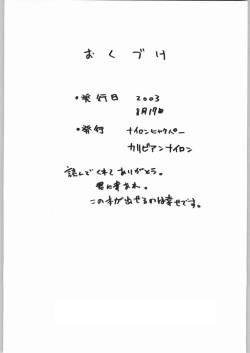 おくづけ
・発行日 2003
8月17日
・発行 ナイロンヒャクパー
カリビアンナイロン
読んでくれてありがとう。
君に幸あれ。
この本が出せるのは幸せです。